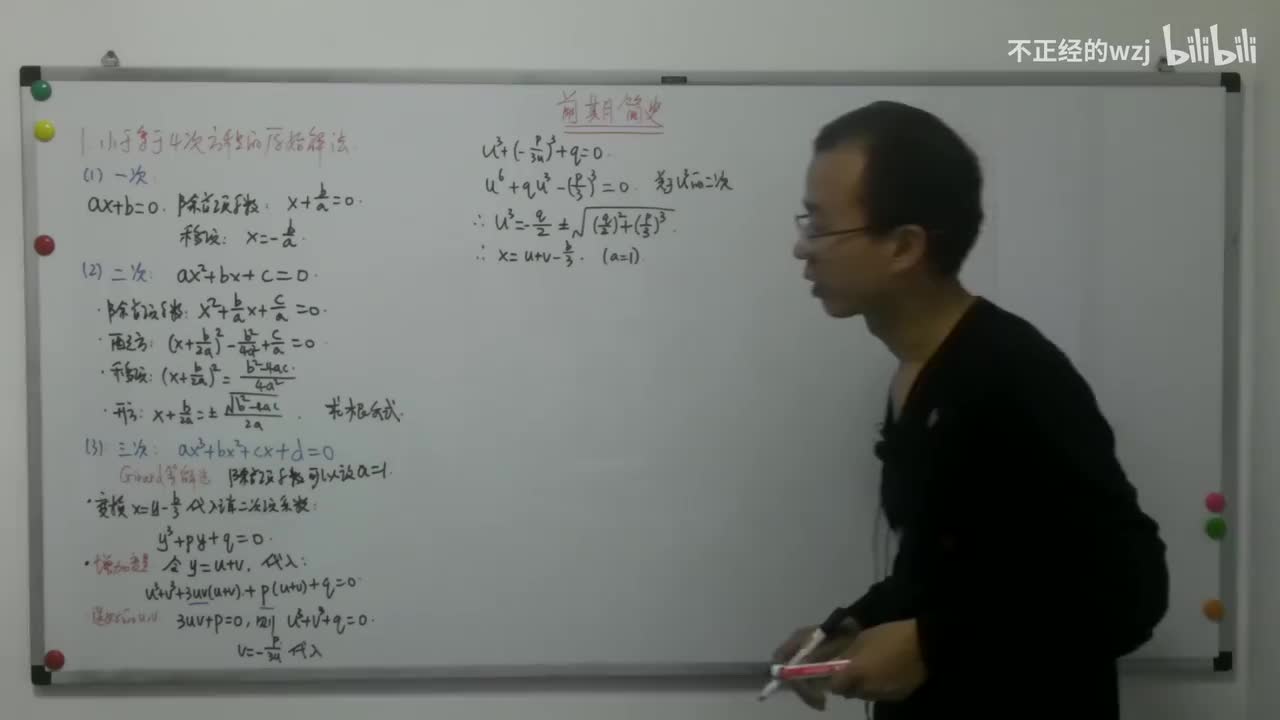 不正经的wzj bilibili
前期简史
1. 小于等于4次方程的原始解法
(1) 一次:
ax+b=0. 除首项系数: x+b/a=0.
移项: x=-b/a.
(2) 二次: ax²+bx+c=0.
· 除首项系数: x²+b/a x+c/a=0.
· 配方: (x+b/2a)²-b²/4a+c/a=0
· 移项: (x+b/2a)²=b²-4ac/4a²
· 开方: x+b/2a=±√b²-4ac/2a. 求根公式.
(3) 三次: ax³+bx²+cx+d=0
除首项系数可以设a=1.
· 变换 x=y-b/3 代入消二次项系数:
y³+py+q=0.
· 增加变量 令y=u+v, 代入:
u³+v³+3uv(u+v)+p(u+v)+q=0
3uv+p=0, 则 u³+v³+q=0.
v=-p/3u 代入
u³+(-p/3u)³+q=0.
u⁶+qu³-(p/3)³=0. 关于u³的二次
∴ u³=-q/2±√(q/2)²+(p/3)³.
∴ x=u+v-b/3. (a=1)